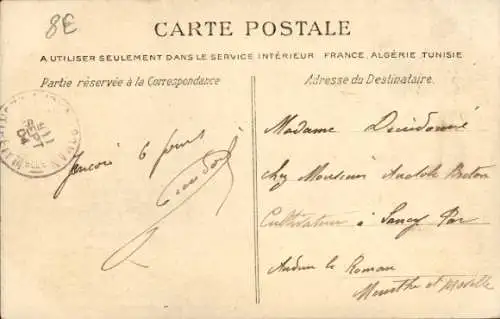 8€
CARTE POSTALE
A UTILISER SEULEMENT DANS LE SERVICE INTÉRIEUR FRANCE, ALGÉRIE, TUNISIE
Partie réservée à la Correspondance
Adresse du Destinataire.
SEPT
04
6 jours
Madame
chez Monsieur Anatole Breton
Cultivateur à Sancy Par
Audun le Roman
Meurthe et Moselle